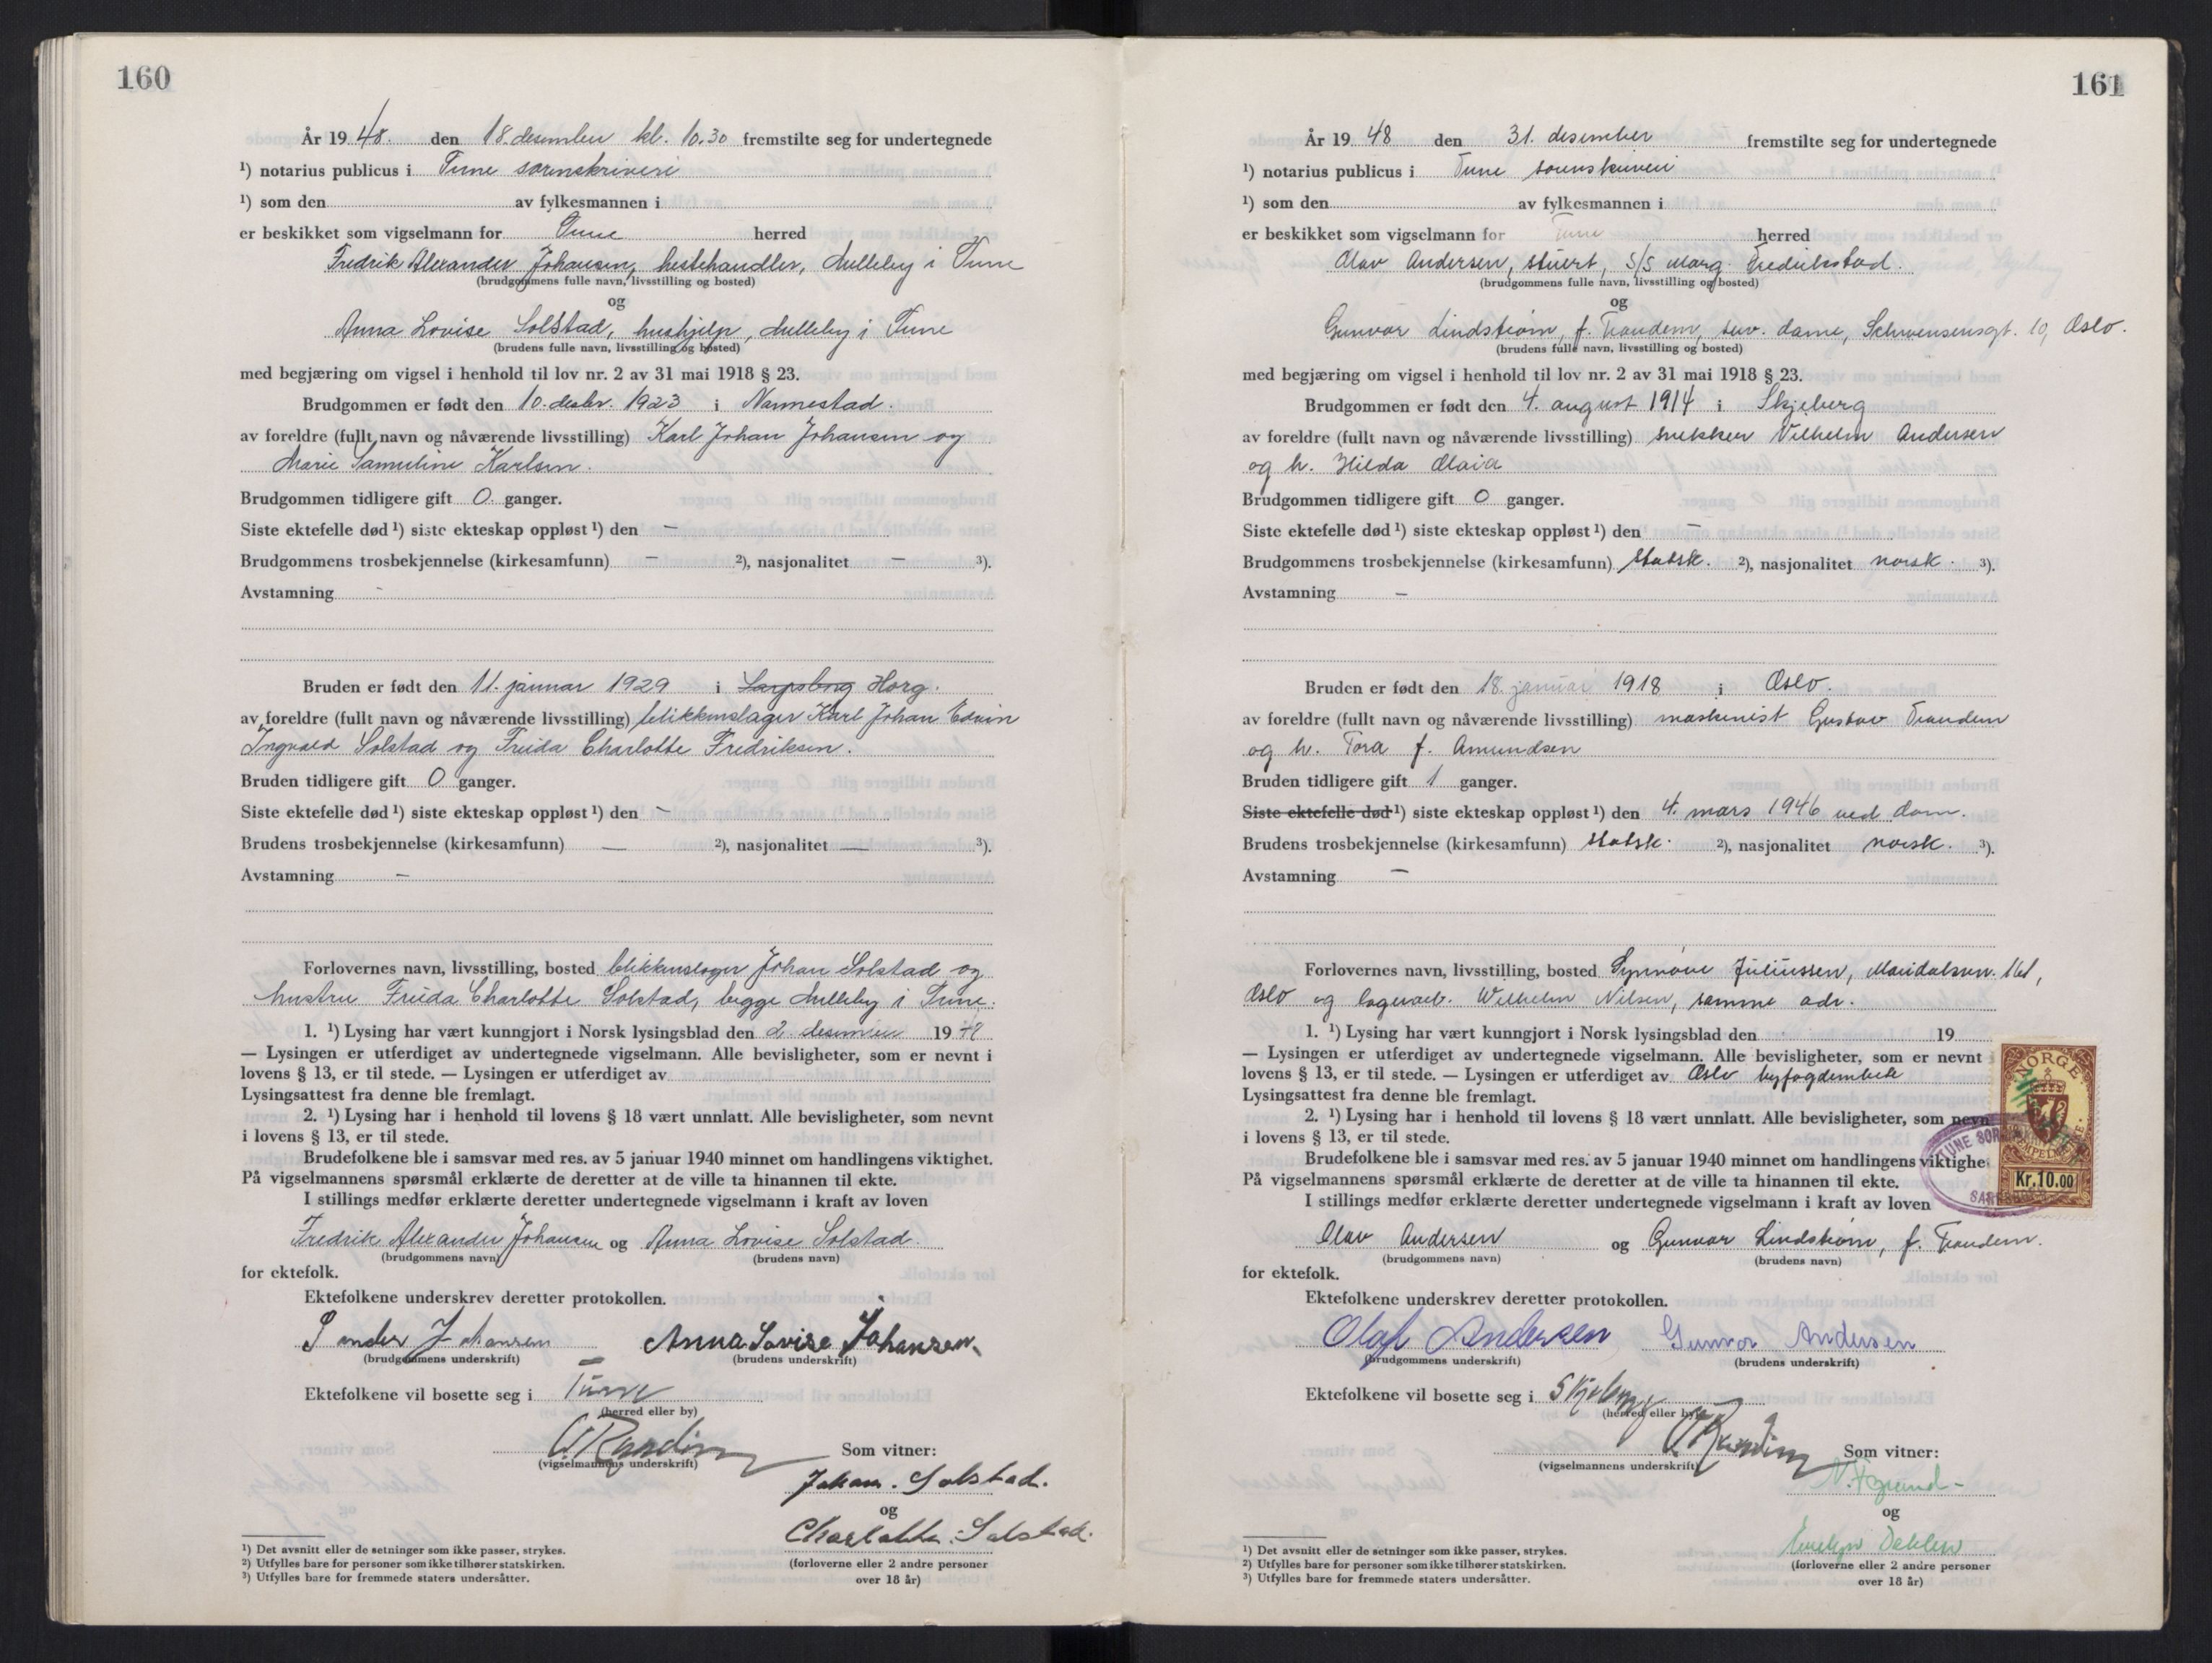 160
År 19 48. den 18. desember kl. 10.30 fremstilte seg for undertegnede
¹) notarius publicus i Tune sorenskriveri
¹) som den av fylkesmannen i
er beskikket som vigselmann for Tune herred
Fredrik Alexander Johansen, hestehandler, Hulleby i Tune
(brudgommens fulle navn, livsstilling og bosted)
og
Anna Lovise Solstad, hushjelp, Hulleby i Tune
(brudens fulle navn, livsstilling og bosted)
med begjæring om vigsel i henhold til lov nr. 2 av 31 mai 1918 § 23.
Brudgommen er født den 10. desbr. 1923 i Nannestad.
av foreldre (fullt navn og nåværende livsstilling) Karl Johan Johansen og
Marie Samuline Karlsen.
Brudgommen tidligere gift 0. ganger.
Siste ektefelle død ¹) siste ekteskap oppløst ¹) den –
Brudgommens trosbekjennelse (kirkesamfunn) – ²), nasjonalitet – ³).
Avstamning -
Bruden er født den 11. januar 1929 i Sarpsborg Horg.
av foreldre (fullt navn og nåværende livsstilling) blikkenslager Karl Johan Edvin
Ingvald Solstad og Frida Charlotte Fredriksen.
Bruden tidligere gift 0 ganger.
Siste ektefelle død ¹) siste ekteskap oppløst ¹) den –
Brudens trosbekjennelse (kirkesamfunn) — ²), nasjonalitet — ³).
Avstamning –
Forlovernes navn, livsstilling, bosted blikkenslager Johan Solstad og
hustru Frida Charlotte Solstad, begge Hulleby i Tune.
1. ¹) Lysing har vært kunngjort i Norsk lysingsblad den 2. desember 19 48
— Lysingen er utferdiget av undertegnede vigselmann. Alle bevisligheter, som er nevnt i
lovens § 13, er til stede. — Lysingen er utferdiget av
Lysingsattest fra denne ble fremlagt.
2. ¹) Lysing har i henhold til lovens § 18 vært unnlatt. Alle bevisligheter, som nevnt
i lovens § 13, er til stede.
Brudefolkene ble i samsvar med res. av 5 januar 1940 minnet om handlingens viktighet.
På vigselmannens spørsmål erklærte de deretter at de ville ta hinannen til ekte.
I stillings medfør erklærte deretter undertegnede vigselmann i kraft av loven
Fredrik Alexander Johansen og Anna Lovise Solstad.
(brudgommens navn) (brudens navn)
for ektefolk.
Ektefolkene underskrev deretter protokollen.
Johansen Anna Lovise Johansen.
(brudgommens underskrift) (brudens underskrift)
Ektefolkene vil bosette seg i Tune
(herred eller by)
(vigselmannens underskrift) Som vitner:
Johan. Solstad.
og
Charlotte. Solstad.
(forloverne eller 2 andre personer
over 18 år)
¹) Det avsnitt eller de setninger som ikke passer, strykes.
²) Utfylles bare for personer som ikke tilhører statskirken.
³) Utfylles bare for fremmede staters undersåtter.
161
År 19 48 den 31. desember fremstilte seg for undertegnede
¹) notarius publicus i Tune sorenskriveri
¹) som den av fylkesmannen i
er beskikket som vigselmann for Tune herred
Olav Andersen, stuert, S/S Marg. Fredrikstad.
(brudgommens fulle navn, livsstilling og bosted)
og
Gunvor Lindstrøm, f. Trandem, serv. dame, Schwensensgt. 10, Oslo.
(brudens fulle navn, livsstilling og bosted)
med begjæring om vigsel i henhold til lov nr. 2 av 31 mai 1918 § 23.
Brudgommen er født den 4. august 1914 i Skjeberg
av foreldre (fullt navn og nåværende livsstilling) snekker Vilhelm Andersen
og h. Hilda Maia
Brudgommen tidligere gift 0 ganger.
Siste ektefelle død ¹) siste ekteskap oppløst ¹) den –
Brudgommens trosbekjennelse (kirkesamfunn) statsk. ²), nasjonalitet norsk. ³).
Avstamning –
Bruden er født den 18. januar 1918 i Oslo.
av foreldre (fullt navn og nåværende livsstilling) maskinist Gustav Trandem
og h. Tora f. Amundsen
Bruden tidligere gift 1 ganger.
Siste ektefelle død ¹) siste ekteskap oppløst ¹) den 4. mars 1946 ved dom.
Brudens trosbekjennelse (kirkesamfunn) statsk. ²), nasjonalitet norsk. ³).
Avstamning –
Forlovernes navn, livsstilling, bosted Synnøve Juliussen, Maridalsvn. 161,
Oslo og lagerarb. Wilhelm Nilsen, samme adr.
1. ¹) Lysing har vært kunngjort i Norsk lysingsblad den 19
— Lysingen er utferdiget av undertegnede vigselmann. Alle bevisligheter, som er nevnt
lovens § 13, er til stede. — Lysingen er utferdiget av Oslo byfogdembete
Lysingsattest fra denne ble fremlagt.
2. ¹) Lysing har i henhold til lovens § 18 vært unnlatt. Alle bevisligheter, som nevn
i lovens § 13, er til stede.
Brudefolkene ble i samsvar med res. av 5 januar 1940 minnet om handlingens viktighe
På vigselmannens spørsmål erklærte de deretter at de ville ta hinannen til ekte.
I stillings medfør erklærte deretter undertegnede vigselmann i kraft av loven
NORGE
Kr.10.00
TUNE SOR
Olav Andersen og Gunvor Lindstrøm, f. Trandem.
(brudgommens navn) (brudens navn)
for ektefolk.
Ektefolkene underskrev deretter protokollen.
Olaf Andersen Gunvor Andersen
(brudgommens underskrift) (brudens underskrift)
Ektefolkene vil bosette seg i Skjeberg
(herred eller by)
(vigselmannens underskrift) Som vitner:
og
Evelyn
(forloverne eller 2 andre personer
over 18 år)
¹) Det avsnitt eller de setninger som ikke passer, strykes.
²) Utfylles bare for personer som ikke tilhører statskirken.
³) Utfylles bare for fremmede staters undersåtter.